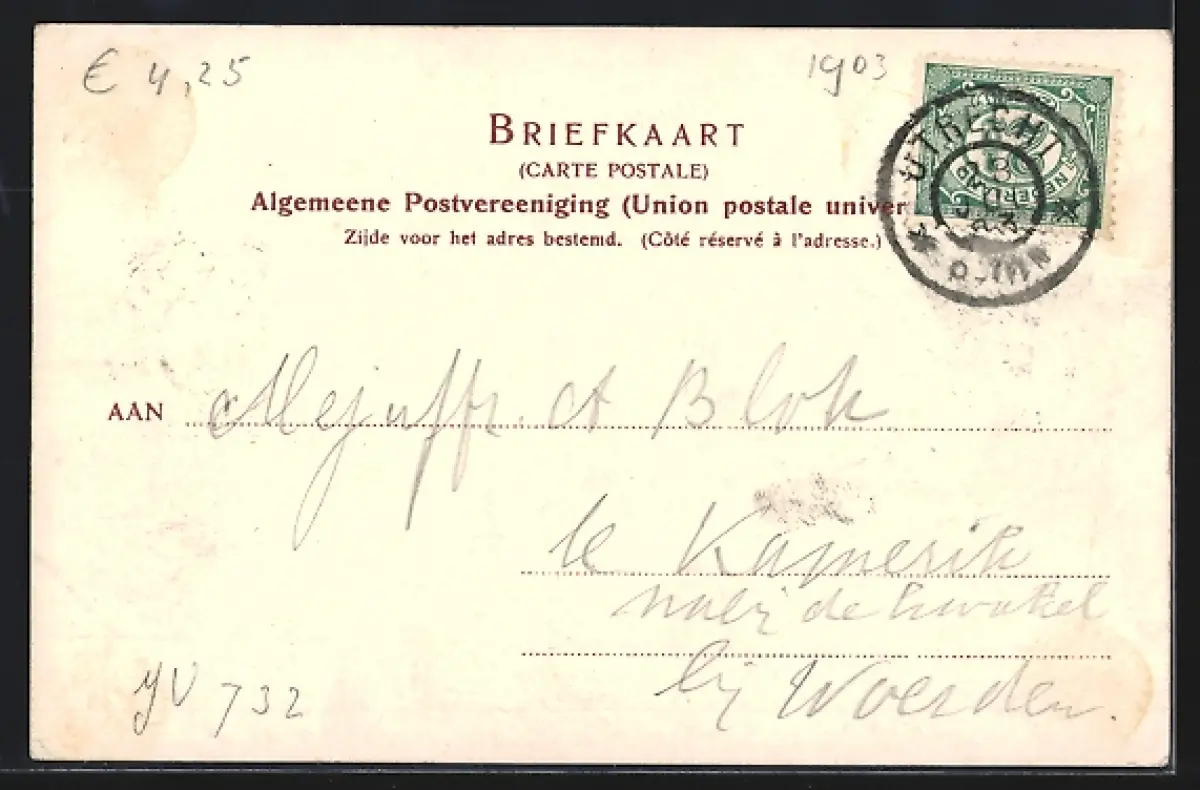 € 4,25
1903
BRIEFKAART
(CARTE POSTALE)
Algemeene Postvereeniging (Union postale univer
Zijde voor het adres bestemd. (Côté réservé à l'adresse.)
UTRECHT
AAN Mejuffr. A Blok
te Kamerik
nabij de kwakel
bij Woerden.
YV 732